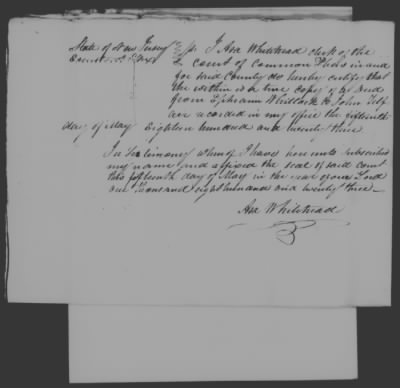 State of New Jersey
County of Essex ss. I Asa Whitehead clerk of the
court of Common Pleas in and
for said County do hereby certify that
the within is a true copy of a Deed
from Ephraim Whitlock to John
as recorded in my office the fifteenth
day of May Eighteen hundred and twenty three.
In Testimony whereof I have hereunto subscribed
my name and affixed the seal of said Court
this fifteenth day of May in the year of our Lord
one thousand eight hundred and twenty three—
Asa Whitehead